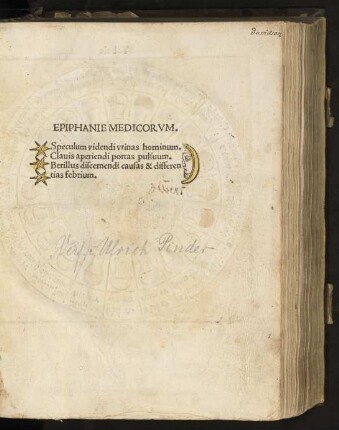 Davidson
EPIPHANIE MEDICORVM.
Speculum videndi vrinas hominum.
Clauis aperiendi portas pulsuum.
Berillus discernendi causas & differen
tias febrium.
Verf. Ulrich Pinder